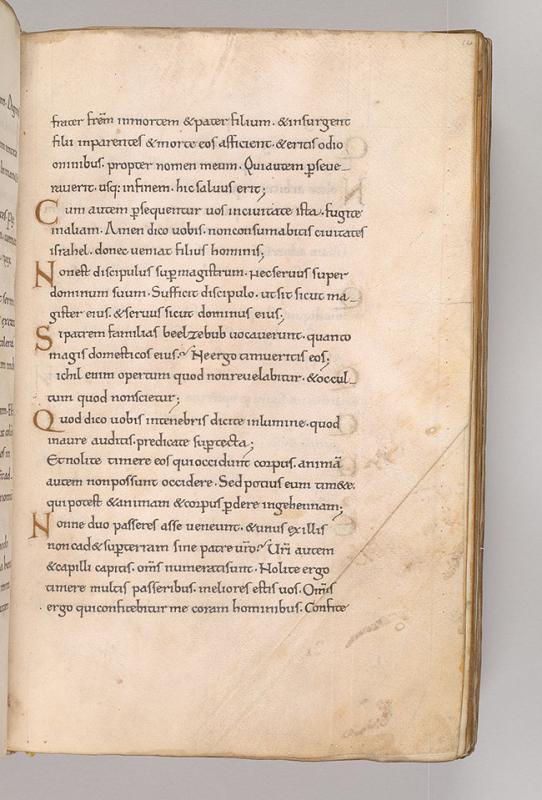 frater frēm inmortem & pater filium. & insurgent
filii inparentes & morte eos afficient. & eritis odio
omnibus. propter nomen meum. Qui autem pseue-
rauerit. usq; infinem. hic saluus erit;
Cum autem psequentur uos inciuitate ista. fugite
inaliam. Amen dico uobis. nonconsumabitis ciuitates
israhel. donec ueniat filius hominis;
Nonest discipulus sup magistrum. necseruus super
dominum suum. Sufficit discipulo. ut sit sicut ma-
gister eius. & seruus sicut dominus eius;
Si patrem familias beelzebub uocauerunt. quanto
magis domesticos eius. Ne ergo timueritis eos;
ichil enim opertum quod nonreuelabitur. & occul-
tum quod nonscietur;
Quod dico uobis intenebris dicite inlumine. quod
inaure auditis. predicate sup tecta;
Et nolite timere eos qui occidunt corpus. animā
autem nonpossunt occidere. Sed potius eum tim&e.
qui potest & animam & corpus pdere ingehennam;
Nonne duo passeres asse ueneunt. & unus ex illis
non cad& sup terram sine patre uro. Uri autem
& capilli capitis. oms numerati sunt. Nolite ergo
timere multis passeribus. meliores estis uos. Omis
ergo qui confitebitur me coram hominibus. Confite